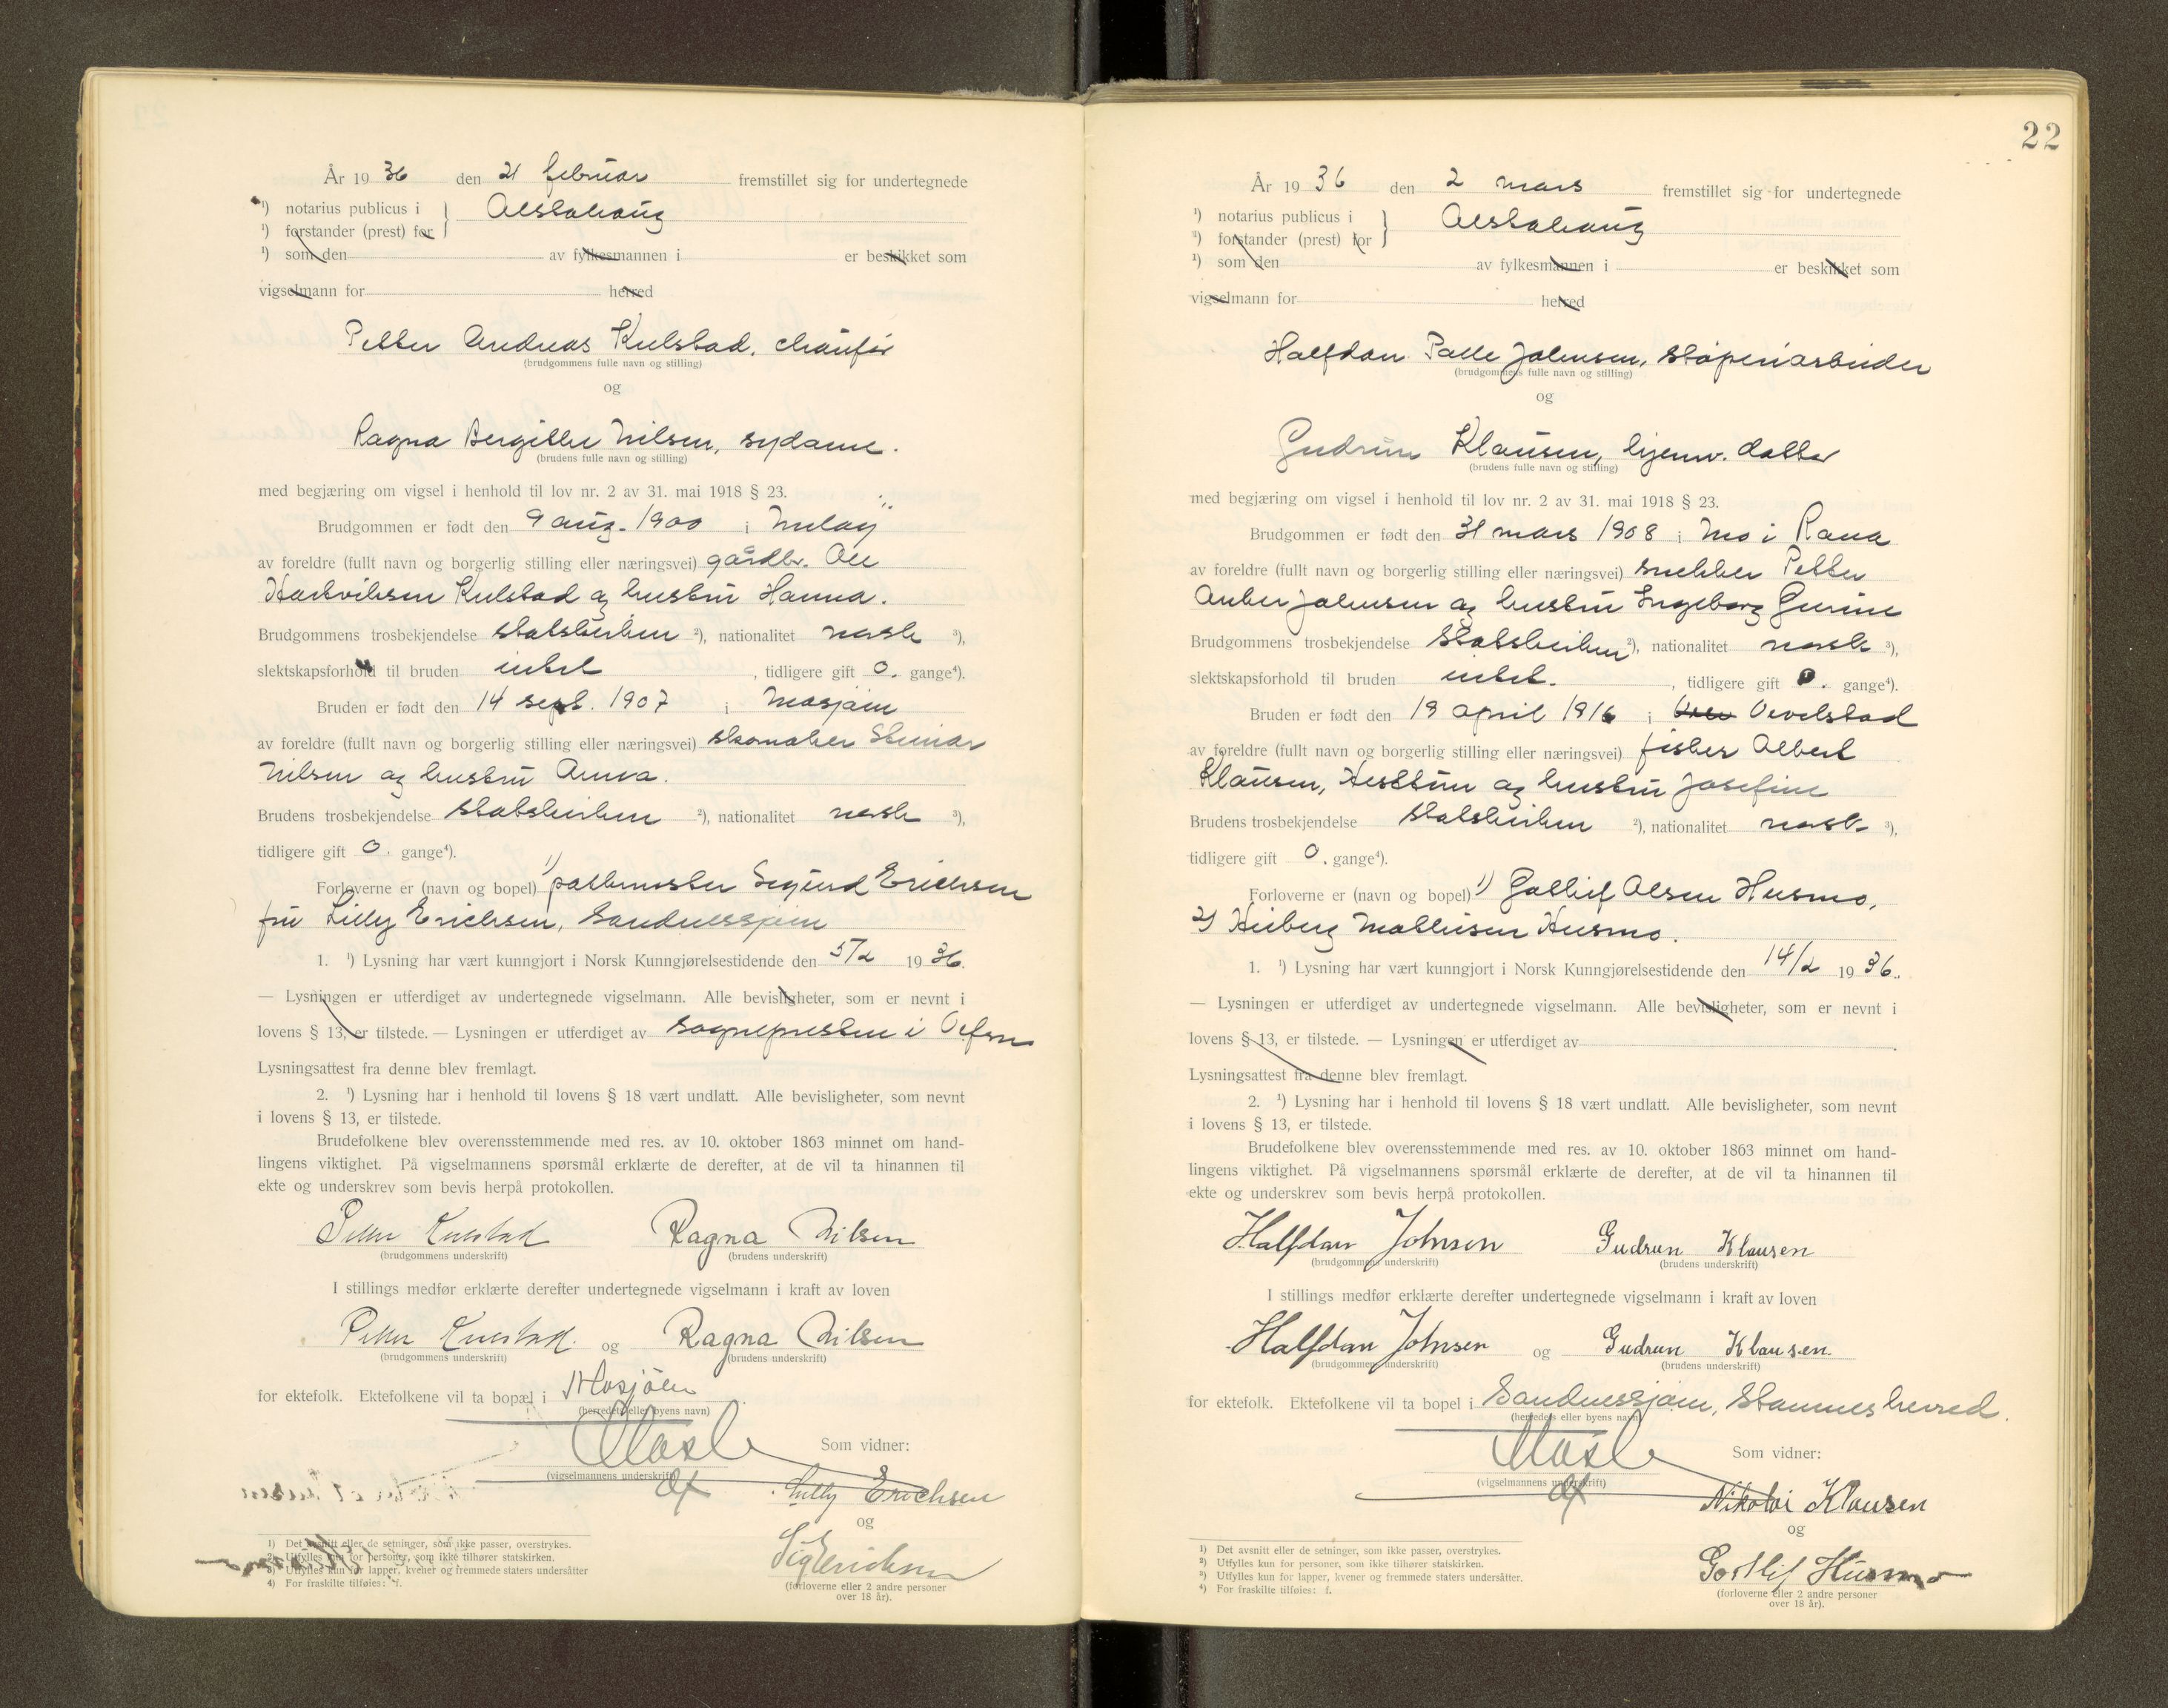 År 19 36 den 21 februar fremstillet sig for undertegnede
¹) notarius publicus i } Alstahaug
¹) forstander (prest) for
¹) som den av fylkesmannen i er beskikket som
vigselmann for herred
Petter Andreas Kulstad, chaufør
(brudgommens fulle navn og stilling)
og
Ragna Bergitte Nilsen, sydame.
(brudens fulle navn og stilling)
med begjæring om vigsel i henhold til lov nr. 2 av 31. mai 1918 § 23.
Brudgommen er født den 9 aug. 1900 i
av foreldre (fullt navn og borgerlig stilling eller næringsvei) gårdbr. Ole
Hartviksen Kulstad og hustru Hanna.
Brudgommens trosbekjendelse statskirken ²), nationalitet norsk ³),
slektskapsforhold til bruden intet , tidligere gift 0. gange⁴).
Bruden er født den 14 sept. 1907 i Mosjøen
av foreldre (fullt navn og borgerlig stilling eller næringsvei) skomaker Steinar
Nilsen og hustru Anna.
Brudens trosbekjendelse statskirken ²), nationalitet norsk ³),
tidligere gift 0. gange⁴).
Forloverne er (navn og bopel) 1) postmester Sigurd Erichsen
fru Lilly Erichsen, Sandnessjøen
1. ¹) Lysning har vært kunngjort i Norsk Kunngjørelsestidende den 5/2 19 36.
— Lysningen er utferdiget av undertegnede vigselmann. Alle bevisligheter, som er nevnt i
lovens § 13, er tilstede. — Lysningen er utferdiget av sognepresten i Vefsn
Lysningsattest fra denne blev fremlagt.
2. ¹) Lysning har i henhold til lovens § 18 vært undlatt. Alle bevisligheter, som nevnt
i lovens § 13, er tilstede.
Brudefolkene blev overensstemmende med res. av 10. oktober 1863 minnet om hand-
lingens viktighet. På vigselmannens spørsmål erklærte de derefter, at de vil ta hinannen til
ekte og underskrev som bevis herpå protokollen.
Petter Kulstad Ragna Nilsen
(brudgommens underskrift) (brudens underskrift)
I stillings medfør erklærte derefter undertegnede vigselmann i kraft av loven
Petter Kulstad. og Ragna Nilsen
(brudgommens underskrift) (brudens underskrift)
for ektefolk. Ektefolkene vil ta bopæl i Mosjöen
(herredets eller byens navn)
Som vidner:
(vigselmannens underskrift)
Lilly Erichsen
og
Sig Erichsen
(forloverne eller 2 andre personer
over 18 år).
1) Det avsnitt eller de setninger, som ikke passer, overstrykes.
2) Utfylles kun for personer, som ikke tilhører statskirken.
3) Utfylles kun for lapper, kvener og fremmede staters undersåtter
4) For fraskilte tilføies: f.
22
År 19 36 den 2 mars fremstillet sig for undertegnede
¹) notarius publicus i } Alstahaug
¹) forstander (prest) for
¹) som den av fylkesmannen i er beskikket som
vigselmann for herred
Halfdan Palle Johnsen, støperiarbeider
(brudgommens fulle navn og stilling)
og
Gudrun Klausen, hjemv. datter
(brudens fulle navn og stilling)
med begjæring om vigsel i henhold til lov nr. 2 av 31. mai 1918 § 23.
Brudgommen er født den 31 mars 1908 i Mo i Rana
av foreldre (fullt navn og borgerlig stilling eller næringsvei) snekker Petter
Anker Johnsen og hustru Ingeborg Gurine
Brudgommens trosbekjendelse statskirken ²), nationalitet norsk ³),
slektskapsforhold til bruden intet. , tidligere gift 0. gange⁴).
Bruden er født den 19 april 1916 i Vevelstad
av foreldre (fullt navn og borgerlig stilling eller næringsvei) fisker Albert
Klausen, Hesttun og hustru Josefine
Brudens trosbekjendelse statskirken ²), nationalitet norsk ³),
tidligere gift 0. gange⁴).
Forloverne er (navn og bopel) 1) Gotlif Olsen Husmo,
2) Heiberg Mathisen Husmo.
1. ¹) Lysning har vært kunngjort i Norsk Kunngjørelsestidende den 14/2 19 36.
— Lysningen er utferdiget av undertegnede vigselmann. Alle bevisligheter, som er nevnt i
lovens § 13, er tilstede. — Lysningen er utferdiget av .
Lysningsattest fra denne blev fremlagt.
2. ¹) Lysning har i henhold til lovens § 18 vært undlatt. Alle bevisligheter, som nevnt
i lovens § 13, er tilstede.
Brudefolkene blev overensstemmende med res. av 10. oktober 1863 minnet om hand-
lingens viktighet. På vigselmannens spørsmål erklærte de derefter, at de vil ta hinannen til
ekte og underskrev som bevis herpå protokollen.
Halfdan Johnsen Gudrun Klausen
(brudgommens underskrift) (brudens underskrift)
I stillings medfør erklærte derefter undertegnede vigselmann i kraft av loven
Halfdan Johnsen og Gudrun Klausen.
(brudgommens underskrift) (brudens underskrift)
for ektefolk. Ektefolkene vil ta bopel i Sandnessjøen, Stamnes herred.
(herredets eller byens navn)
Som vidner:
(vigselmannens underskrift)
Nikolai Klausen
og
Gotlif Husmo
(forloverne eller 2 andre personer
over 18 år).
¹) Det avsnitt eller de setninger, som ikke passer, overstrykes.
²) Utfylles kun for personer, som ikke tilhører statskirken.
³) Utfylles kun for lapper, kvener og fremmede staters undersåtter.
⁴) For fraskilte tilføies: f.